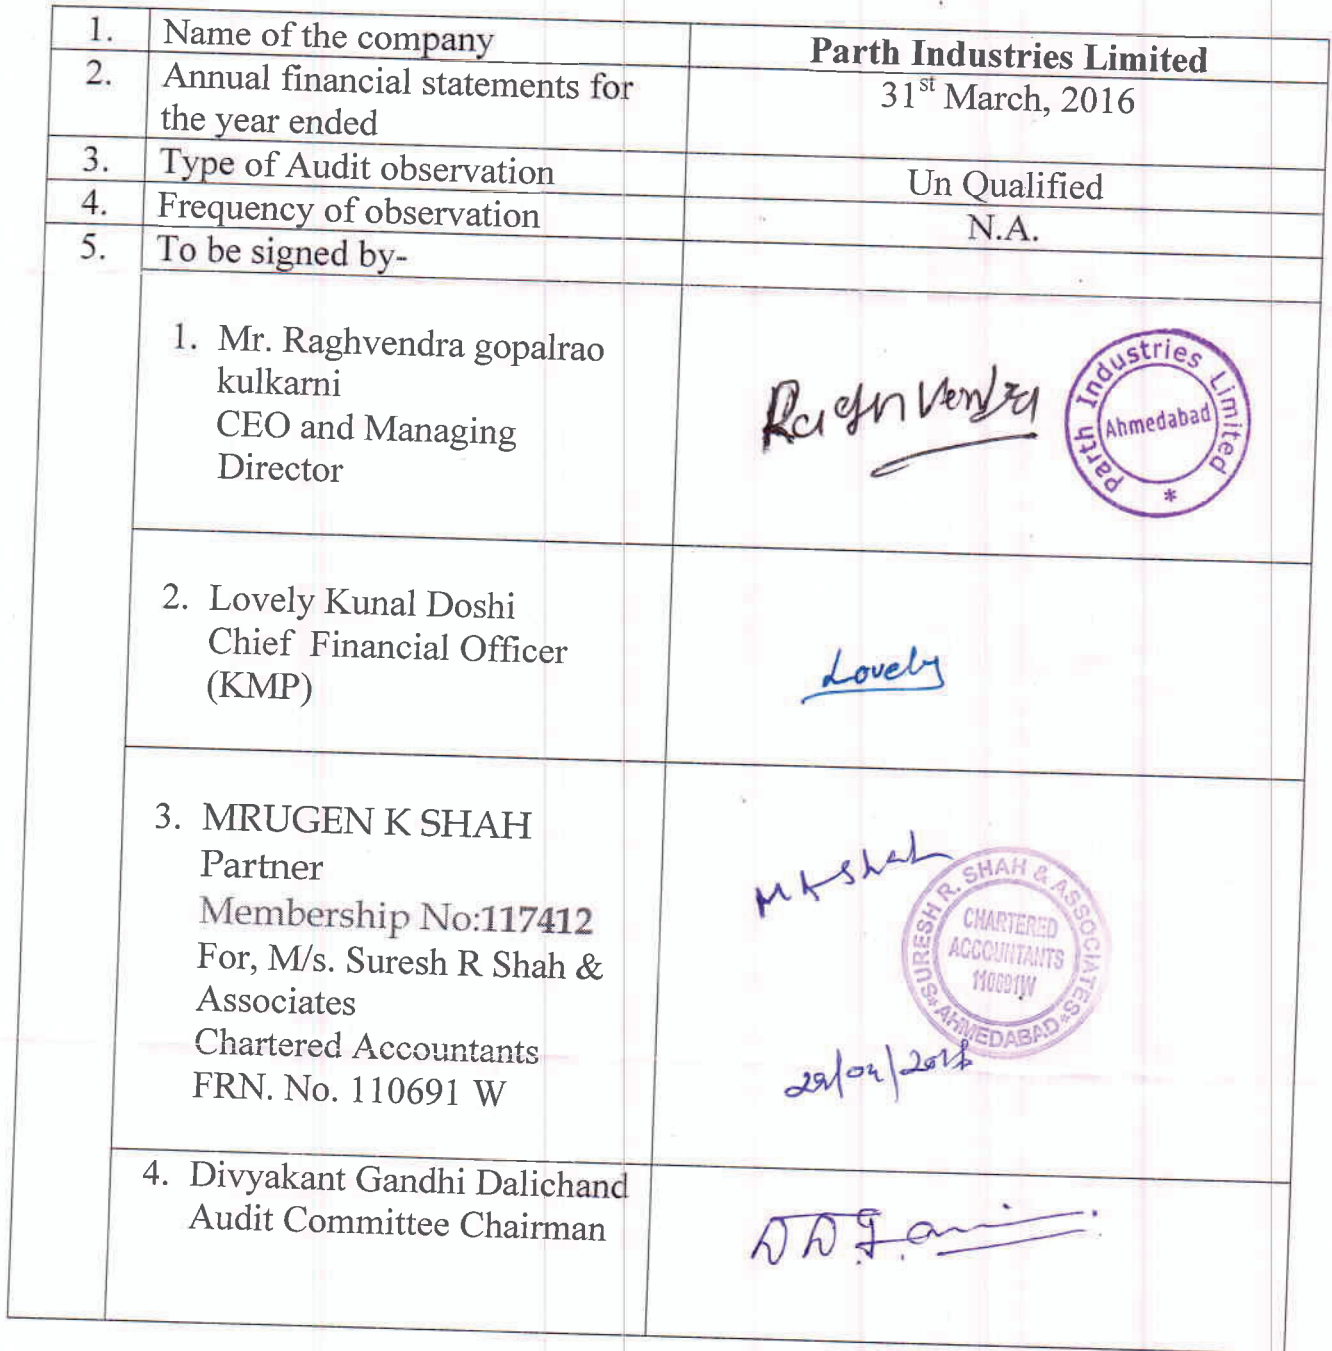 1. Name of the company Parth Industries Limited
2. Annual financial statements for 31st March, 2016
the year ended
3. Type of Audit observation Un Qualified
4. Frequency of observation N.A.
5. To be signed by-
1. Mr. Raghvendra gopalrao
kulkarni
CEO and Managing
Director
Raghvendra
Parth Industries Limited
Ahmedabad
*
2. Lovely Kunal Doshi
Chief Financial Officer
(KMP)
Lovely
3. MRUGEN K SHAH
Partner
Membership No:117412
For, M/s. Suresh R Shah &
Associates
Chartered Accountants
FRN. No. 110691 W
M K Shah
SURESH R. SHAH & ASSOCIATES
CHARTERED
ACCOUNTANTS
110691W
*AHMEDABAD*
4. Divyakant Gandhi Dalichand
Audit Committee Chairman